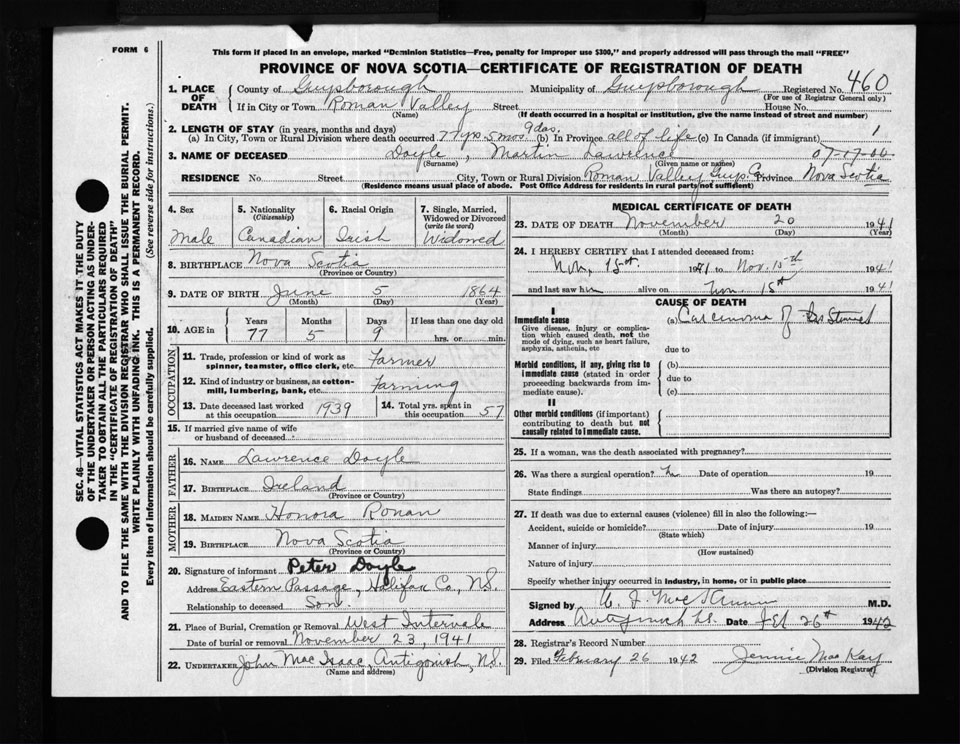 FORM 6
This form if placed in an envelope, marked "Dominion Statistics—Free, penalty for improper use $300," and properly addressed will pass through the mail "FREE"
PROVINCE OF NOVA SCOTIA—CERTIFICATE OF REGISTRATION OF DEATH
1. PLACE OF DEATH County of Guysborough Municipality of Guysborough Registered No. 460
(For use of Registrar General only)
If in City or Town Roman Valley Street House No.
(Name) (If death occurred in a hospital or institution, give the name instead of street and number)
2. LENGTH OF STAY (in years, months and days)
(a) In City, Town or Rural Division where death occurred 77 yrs 5 mos 9 das. (b) In Province all of life (c) In Canada (if immigrant) 1
3. NAME OF DECEASED Doyle, Martin Lawrence
(Surname) (Given name or names)
RESIDENCE No. Street City, Town or Rural Division Roman Valley Guys. Co. Province Nova Scotia
(Residence means usual place of abode. Post Office Address for residents in rural parts not sufficient)
4. Sex Male
5. Nationality (Citizenship) Canadian
6. Racial Origin Irish
7. Single, Married, Widowed or Divorced (write the word) Widowed
8. BIRTHPLACE Nova Scotia
(Province or Country)
9. DATE OF BIRTH June 5 1864
(Month) (Day) (Year)
10. AGE in Years 77 Months 5 Days 9 If less than one day old hrs. or min.
OCCUPATION
11. Trade, profession or kind of work as spinner, teamster, office clerk, etc. Farmer
12. Kind of industry or business, as cotton-mill, lumbering, bank, etc. Farming
13. Date deceased last worked at this occupation 1939
14. Total yrs. spent in this occupation 57
15. If married give name of wife or husband of deceased
FATHER
16. NAME Lawrence Doyle
17. BIRTHPLACE Ireland
(Province or Country)
MOTHER
18. MAIDEN NAME Honora Ronan
19. BIRTHPLACE Nova Scotia
(Province or Country)
20. Signature of informant Peter Doyle
Address Eastern Passage, Halifax Co., N.S.
Relationship to deceased Son.
21. Place of Burial, Cremation or Removal West Intervale
Date of burial or removal November 23, 1941
22. UNDERTAKER John Mac Isaac, Antigonish, N.S.
(Name and address)
MEDICAL CERTIFICATE OF DEATH
23. DATE OF DEATH November 20 1941
(Month) (Day) (Year)
24. I HEREBY CERTIFY that I attended deceased from:
Nov. 15th 1941 to Nov. 15th 1941
and last saw him alive on Nov. 15th 1941
CAUSE OF DEATH
I
Immediate cause
Give disease, injury or complication which caused death, not the mode of dying, such as heart failure, asphyxia, asthenia, etc
(a) Carcinoma of
due to
Morbid conditions, if any, giving rise to immediate cause (stated in order proceeding backwards from immediate cause).
(b)
due to
(c)
II
Other morbid conditions (if important) contributing to death but not causally related to immediate cause.
25. If a woman, was the death associated with pregnancy?
26. Was there a surgical operation? Date of operation 19
State findings Was there an autopsy?
27. If death was due to external causes (violence) fill in also the following:—
Accident, suicide or homicide? Date of injury 19
(State which)
Manner of injury
(How sustained)
Nature of injury
Specify whether injury occurred in industry, in home, or in public place
Signed by M.D.
Address Date Feb 26th 1942
28. Registrar's Record Number
29. Filed February 26 1942 Jennie MacKay
(Division Registrar)
SEC. 46—VITAL STATISTICS ACT MAKES IT THE DUTY
OF THE UNDERTAKER OR PERSON ACTING AS UNDER-
TAKER TO OBTAIN ALL THE PARTICULARS REQUIRED
IN THE "CERTIFICATE OF REGISTRATION OF DEATH"
AND TO FILE THE SAME WITH THE DIVISION REGISTRAR WHO SHALL ISSUE THE BURIAL PERMIT.
WRITE PLAINLY WITH UNFADING INK. THIS IS A PERMANENT RECORD.
Every item of information should be carefully supplied. (See reverse side for instructions.)